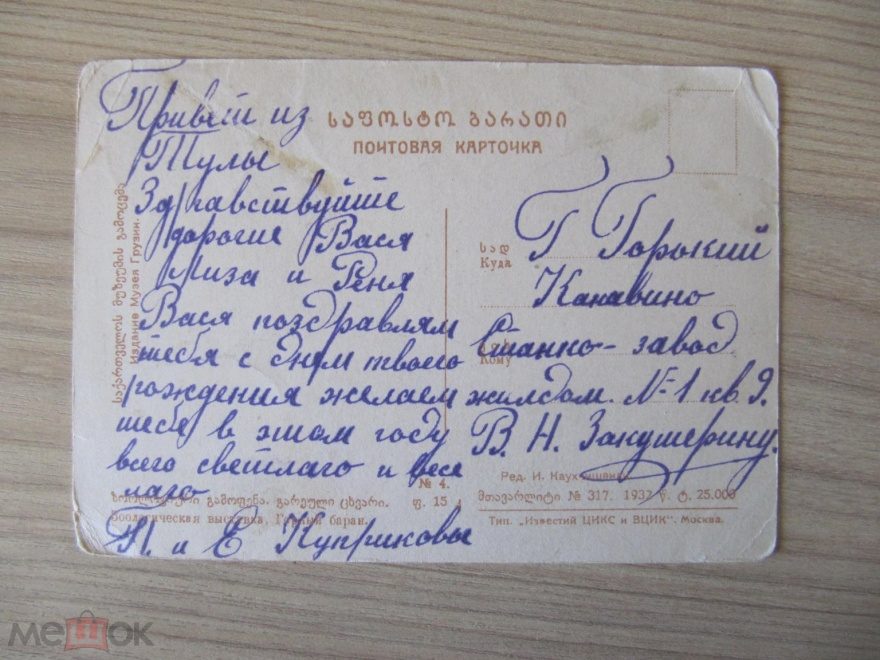 Привет из
Тулы
Здравствуйте
дорогие Вася
Лиза и Геня
Вася поздравлям
тебя с днем твоего
рождения желаем
тебе в этом году
всего светлаго и весе
лаго
П. и Е Куприковы
საფოსტო ბარათი
ПОЧТОВАЯ КАРТОЧКА
სად
Куда
Г Горький
Канавино
Станко-завод
Кому
жилдом. №1 кв 9.
В. Н. Закушерину.
საქართველოს მუზეუმის გამოცემა
Издание Музея Грузии.
№ 4.
ф. 15
გამოფენა. გარეული ცხვარი.
Зоологическая выставка, Горный баран.
Ред. И.
მთავარლიტი № 317. 1932 წ. ტ. 25.000
Тип. „Известий ЦИКС и ВЦИК“. Москва.
мешок